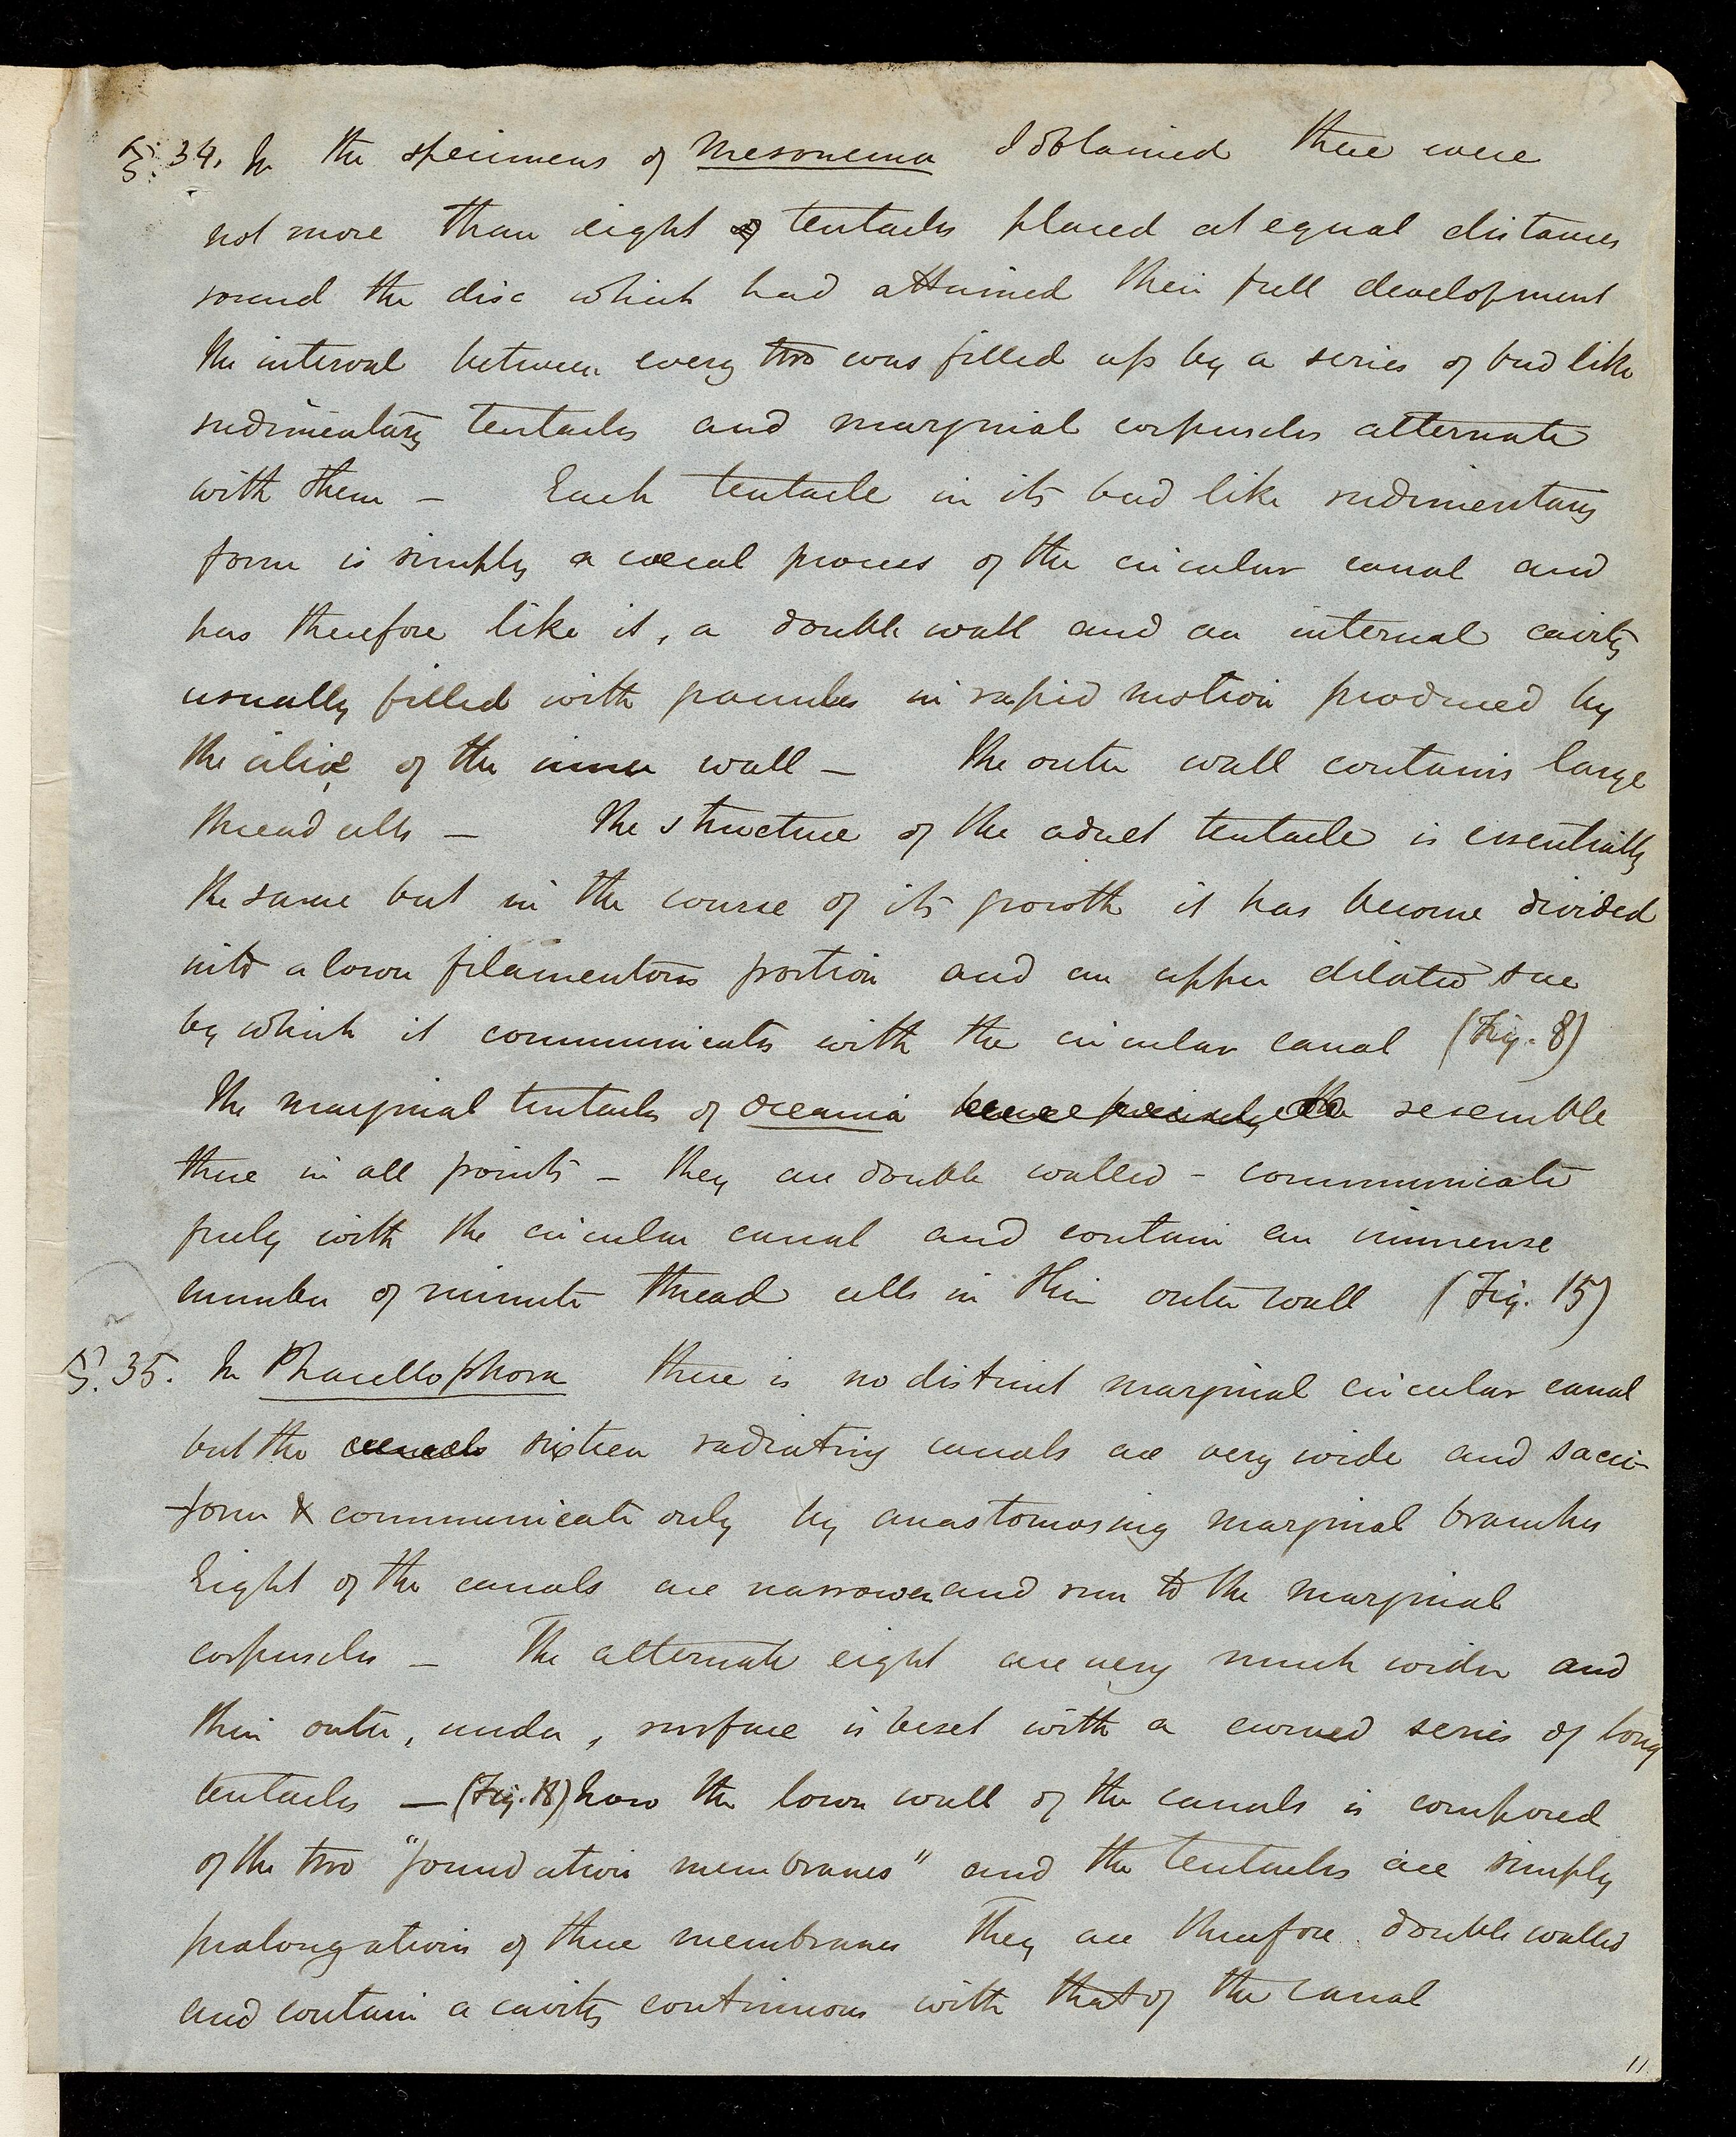 §. 34. In the specimens of Mesonema I obtained there were
not more than eight tentacles placed at equal distances
round the disc which had attained their full development
the interval between every two was filled up by a series of bud like
rudimentary tentacles and marginal corpuscles alternate
with them — Each tentacle in its bud like rudimentary
form is simply a cœcal process of the circular canal and
has therefore like it, a double wall and an internal cavity
usually filled with granules in rapid motion produced by
the ciliæ of the inner wall — The outer wall contains large
thread cells — The structure of the adult tentacle is essentially
the same but in the course of its growth it has become divided
into a lower filamentous portion and an upper dilated sac
by which it communicates with the circular canal (Fig. 8)
The marginal tentacles of Oceania resemble
these in all points — they are double walled — communicate
freely with the circular canal and contain an immense
number of minute thread cells in their outer wall (Fig. 15)
§. 35. In Phacellophora there is no distinct marginal circular canal
but the canals sixteen radiating canals are very wide and sacci-
-form & communicate only by anastomosing marginal branches
Eight of the canals are narrower and run to the marginal
corpuscles — The alternate eight are very much wider and
their outer, under, surface is beset with a curved series of long
tentacles — (Fig. 18) how the lower wall of the canals is composed
of the two "foundation membranes" and the tentacles are simply
prolongations of these membranes They are therefore double walled
and contain a cavity continuous with that of the canal
11